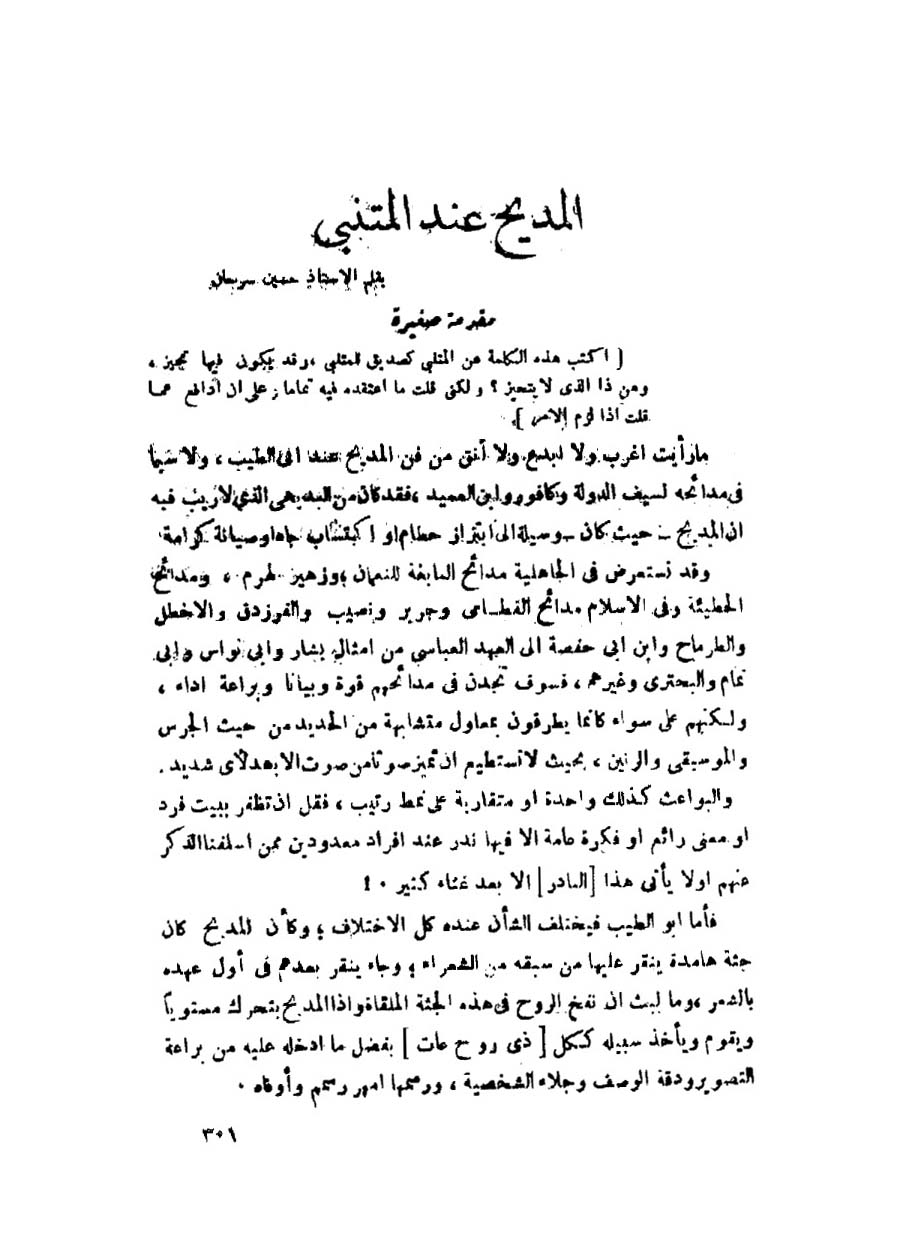 المديح عند المتنبي
بقلم الاستاذ حسين سرحان
مقدمة صغيرة
[ اكتب هذه الكلمة عن المتنبي كصديق للمتنبي ، وقد يكون فيها تحيز ،
ومن ذا الذى لا يتحيز ؟ ولكنى قلت ما اعتقده فيه تماما ، وعلى ان ادافع عما
قلت اذا لزم الامر ].
مارأيت اغرب ولا ابدع ولا آنق من فن المديح عند ابى الطيب ، ولا سيما
فى مدائحه لسيف الدولة وكافور وابن العميد ، فقد كان من البديهى الذى لا ريب فيه
ان المديح ـ حيث كان ـ وسيلة الى ابتزاز حطام او اكتساب جاه او صيانة كرامة
وقد نستعرض فى الجاهلية مدائح النابغة للنعمان ؛ وزهير لهرم ، ومدائح
الحطيئة وفى الاسلام مدائح القطامى وجرير ونصيب والفرزدق والاخطل
والطرماح وابن ابى حفصة الى العهد العباسي من امثال بشار وابى نواس وابى
تمام والبحترى وغيرهم ، فسوف تجدن فى مدائحهم قوة وبيانا وبراعة اداء ،
ولكنهم على سواء كانما يطرقون بمعاول متشابهة من الحديد من حيث الجرس
والموسيقى والرنين ، بحيث لا تستطيع ان تميز صوتا من صوت الا بعد لأى شديد .
والبواعث كذلك واحدة او متقاربة على نمط رتيب ، فقل ان تظفر ببيت فرد
او معنى رائع او فكرة عامة الا فيما ندر عند افراد معدودين ممن اسلفنا الذكر
عنهم اولا يأتى هذا [النادر] الا بعد غثاء كثير . !
فأما ابو الطيب فيختلف الشأن عنده كل الاختلاف ؛ وكأن المديح كان
جثة هامدة ينقر عليها من سبقه من الشعراء ؛ وجاء ينقر بعدهم فى أول عهده
بالشعر ، وما لبث ان نفخ الروح فى هذه الجثة الملقاة واذا المديح يتحرك مستوياً
ويقوم ويأخذ سبيله ككل [ ذى روح عات ] بفضل ما ادخله عليه من براعة
التصوير ودقة الوصف وجلاء الشخصية ، ورسمها امهر رسم وأوفاه .
٣٠١